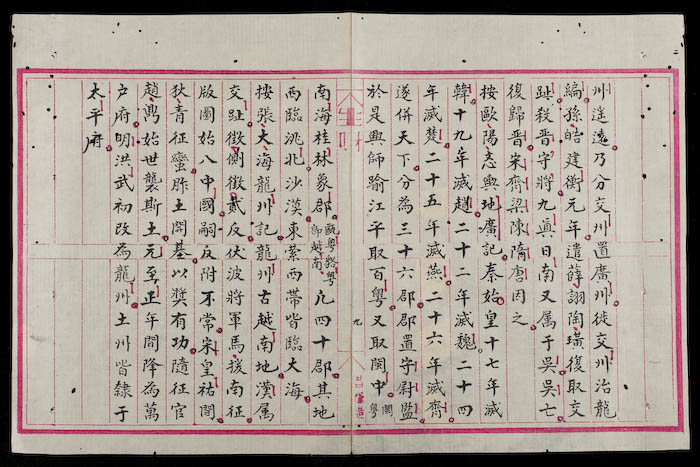 州遥遠乃分交州置廣州徙交州治龍
編孫皓建衡元年遣薛翊陶璜復取交
趾殺晉守將九真日南又属于吳吳亡
復歸晉宋齊梁陳隋唐因之
按歐陽忞輿地廣記秦始皇十七年滅
韓十九年滅趙二十二年滅魏二十四
年滅楚二十五年滅燕二十六年滅齊
遂併天下分為三十六郡郡置守尉監
於是興師踰江平取百粤又取閩中閩粤
九
南海桂林象郡甌粤谿粤即越南凡四十郡其地
西臨洮北沙漠東縈西帶皆臨大海
按張大海龍州記龍州古越南地漢属
交趾徵側徵貳反伏波將軍馬援南征
版圖始入中國嗣反附不常宋皇祐間
狄青征蠻胙土開基以獎有功隨征官
趙鼎始世襲斯土元至正年間降為萬
户府明洪武初改為龍州土州皆隸于
太平府